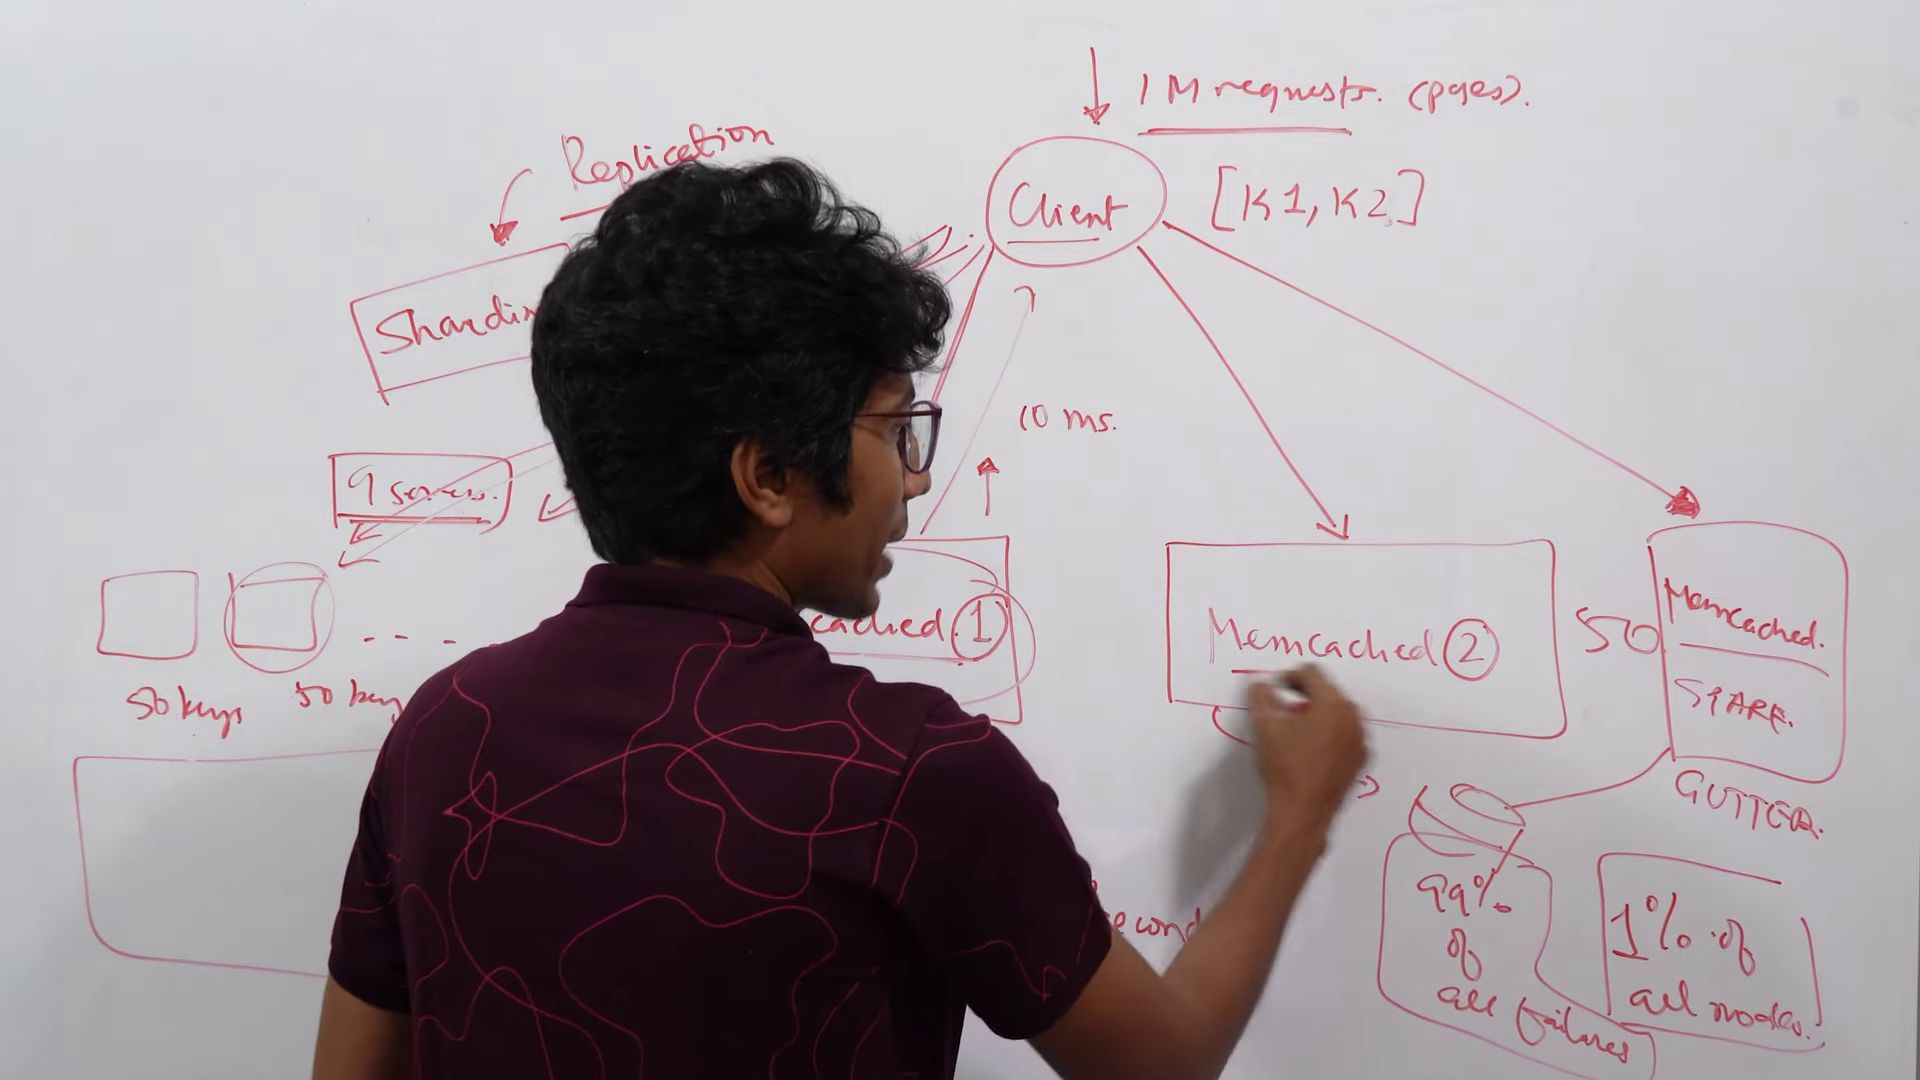 1M requests. (pages).
Replication
Client
[K1, K2]
Shardin
10 ms.
9 servers.
cached 1
Memcached 2
50
Memcached.
SPARE.
50 keys
50 key
GUTTER.
99%
of
all failures
1% of
all nodes.
econd